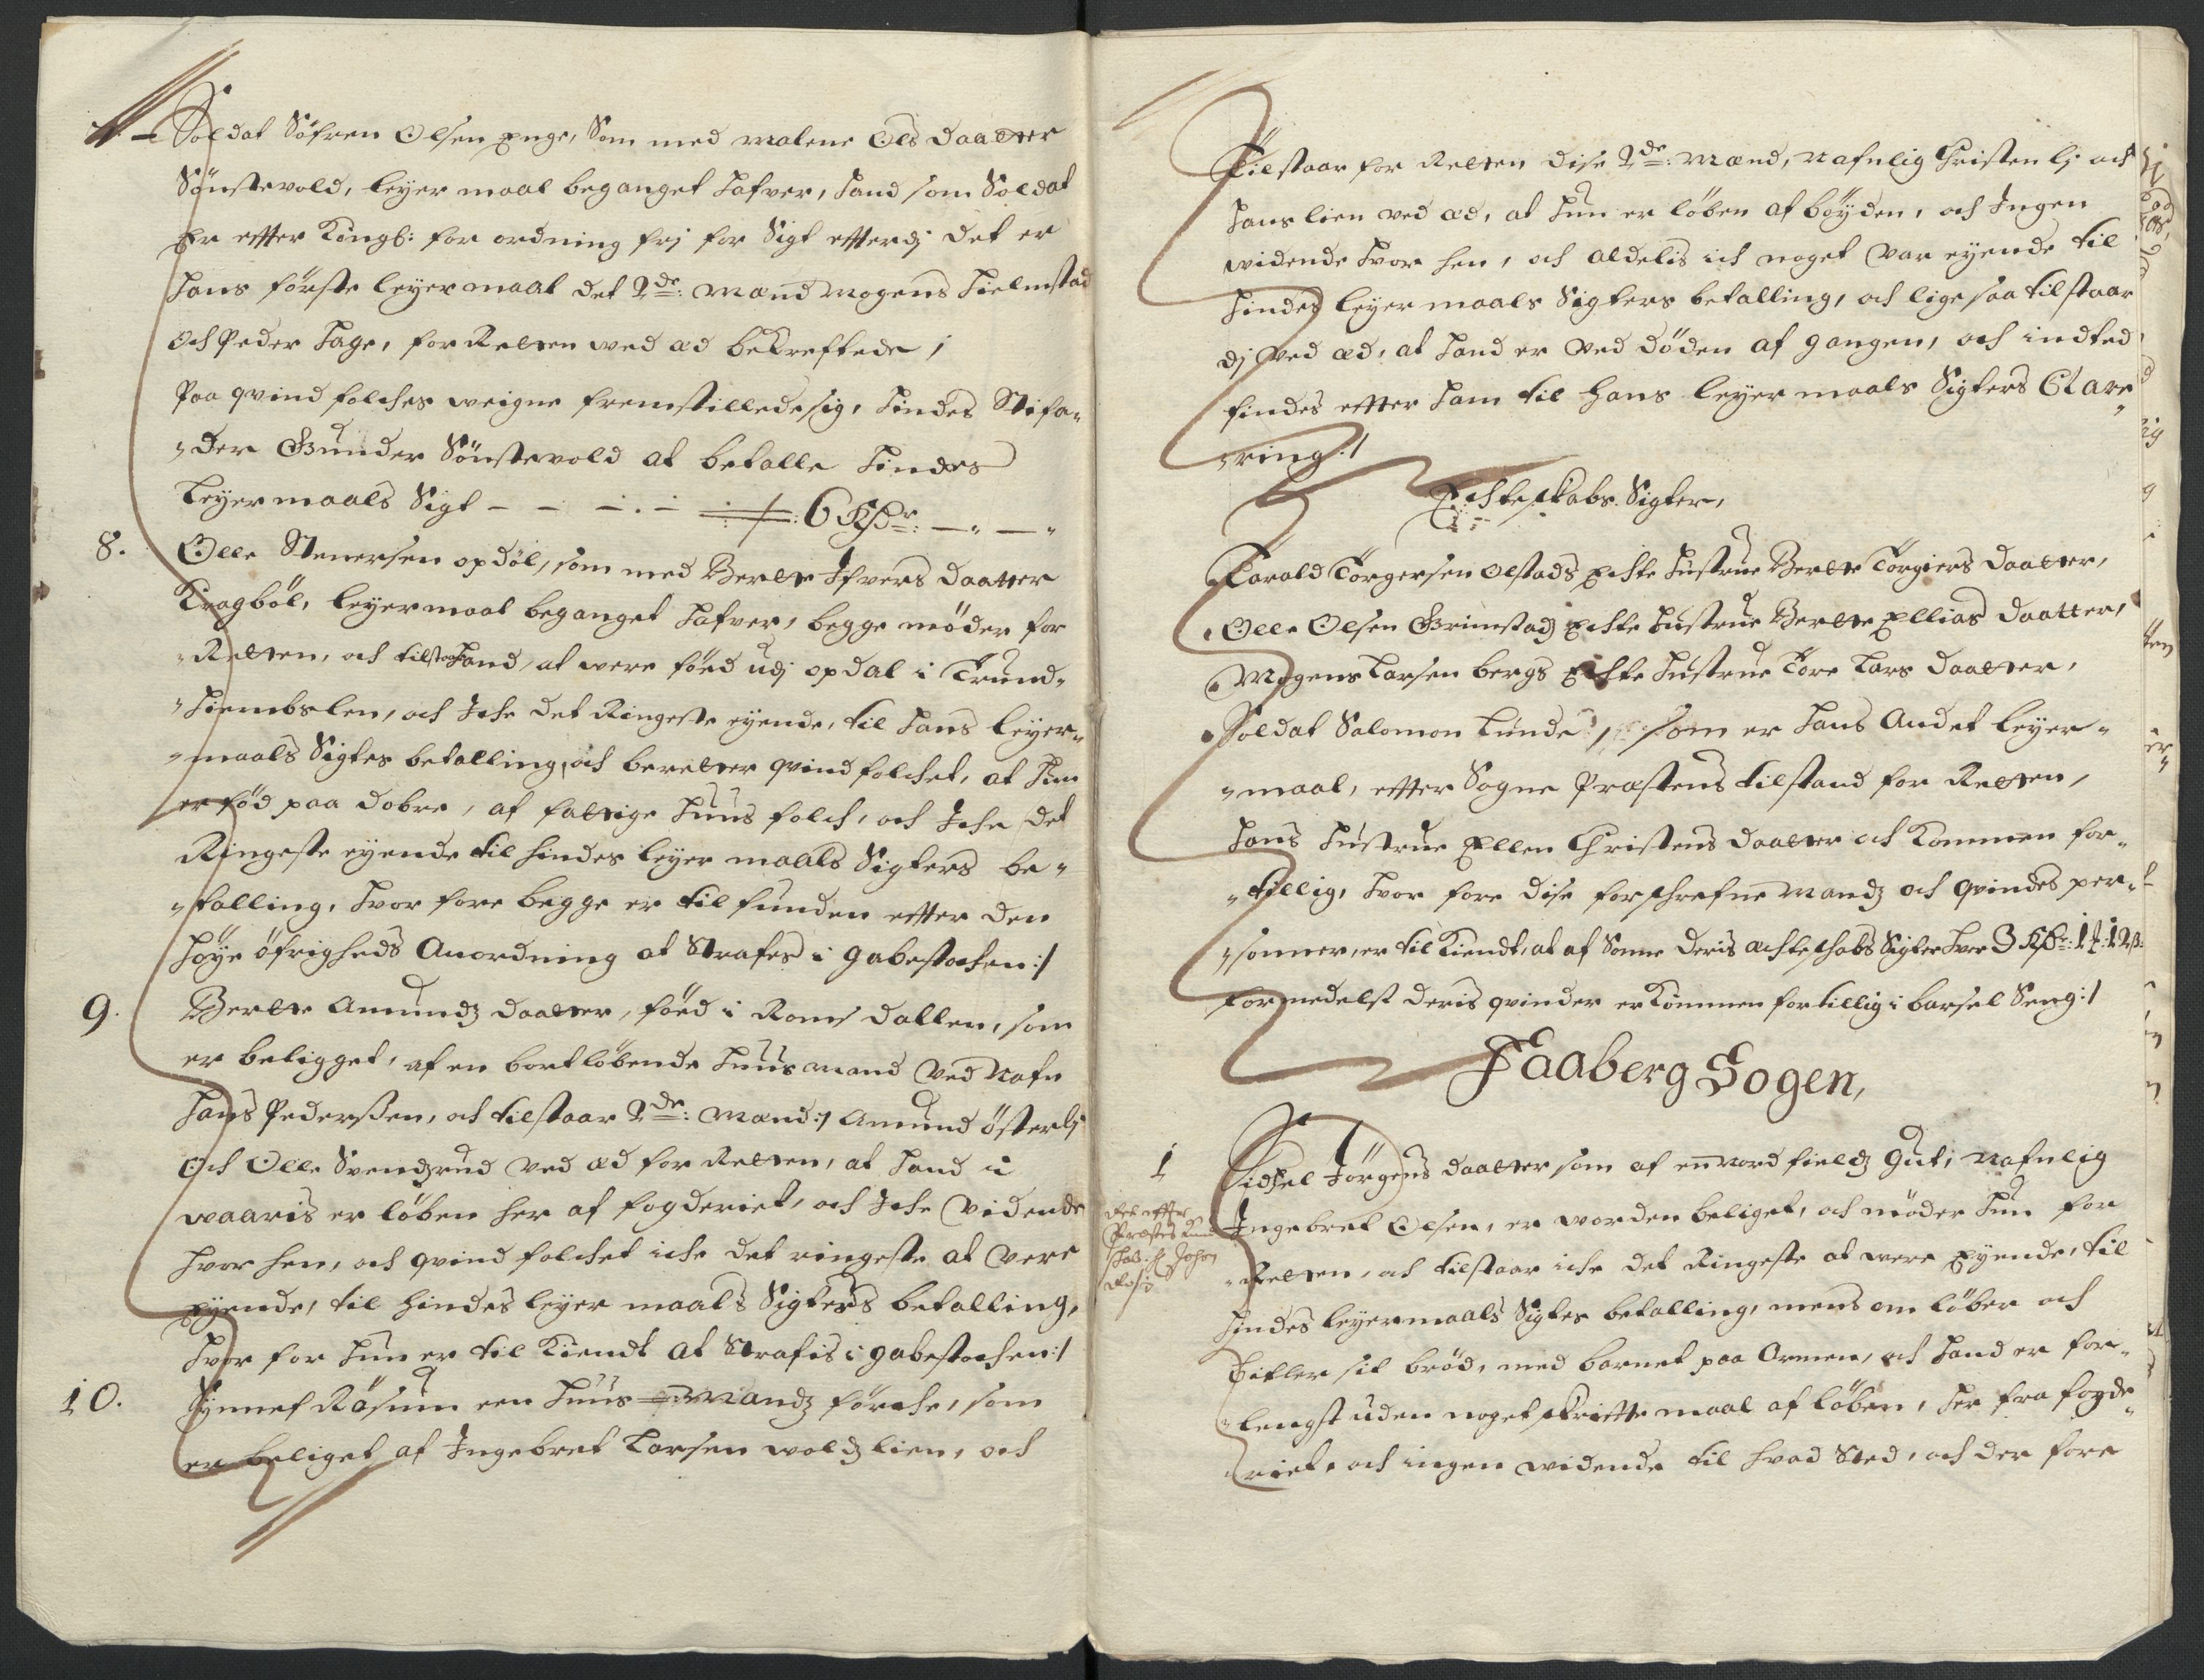 7. Soldat Söfren Olsen Enge, Som med Malene Ols daatter
Sönstevold, leyermaal beganget hafver, hand som Soldat
Er efter Kongl: forordning frj for Sigt efterdj det er
hans förste leyermaal det 2de: mænd Mogens hielmstad
och Peder hage, for Retten wed æd bekreftede /
Paa qvindfolches weigne fremstillede sig, hindes Stifa-
-der Gunder Sönstevold at betalle hindes
leyermaals Sigt - - - - 6 Rdr: - " - "
8. Olle Stenersen opdöl, som med Berte Ifvers daatter
Kragböl, leyermaal beganget hafver, begge möder for
Retten, och tilstaar hand, at were föed udj opdal i Trund-
-hiembs len, och Iche det Ringeste eyende, til hans leyer-
-maals Sigtes betalling, och beretter qvindfolchet, at hun
er föd paa dobre, af fattige huus folch, och Iche det
Ringeste eyende til hindes leyermaals Sigters be-
-talling, hvor fore begge er tilfunden efter den
höye öfrigheds Anordning at Strafes i gabestochen:/
9. Berte Amundz daatter, föed i Roms dallen, som
er beligget, af en bortlöbende huusmand ved Nafn
hans Pederssen, och tilstaar 2de: mænd:/ Amund österlj
Och Olle Svendzrud ved æd for Retten, at hand i
waaris er löben her af fogderiet, och Iche vidende
hvor hen, och qvindfolchet iche det ringeste at vere
Eyende, til hindes leyermaals Sigters betalling,
hvor for hun er tilkiendt at Strafis i gabestochen:/
10. Synnef RöSum een huusmandz förche, som
er beliget af Ingebret Larsen woldz lien, och
Tilstaar for Retten dise 2de: mænd, nafnlig Christen lj och
hans lien ved æd, at hun er löben af böyden, och Ingen
widende hvor hen, och aldelis ich noget var eyende til
hindes leyermaals Sigters betalling, och ligesaa tilstaar
dj ved æd, at hand er ved döden afgangen, och intted
findes efter ham til hans leyermaals Sigters Clare-
-ring:/
Echteskabs Sigter,
Harald Törgersen Olstads Echte hustrue Berte Törgiers daatter,
Olle Olsen Grimstad Echte hustrue Berte Ellias daatter,
Mogens Larsen bergs Echte hustrue Töre Lars daatter,
Soldat Salomon Lunde, som er hans Andet leyer-
-maal, efter Sogne Præstens tilstand for Retten,
hans hustrue Ellen Christens daatter och kommen for-
-tillig, hvor fore dise forschrefne mandz och qvindes per-
-sonner, er tilkiendt, at af Sonne deris ächteschabs Sigter hver 3 Rdr: 1 ort: 12 s:
formedelst deris qvinder er kommen for tillig i barsel Seng:/
Faaberg Sogen,
1 Sidsel Jörgens daatter som af en nordfieldz gut, nafnlig
Ingebret Olsen, er worden beliget, och möder hun for
Retten, och tilstaar iche det Ringeste at were Eyende, til
hindes leyermaals Sigtes betalling, mens omlöber och
bitler sit bröd, med barnet paa Armen, och hand er for-
-lengst uden noget skriftte maal aflöben, her fra fogde-
-riet, och ingen widende til hvad Sted, och der fore